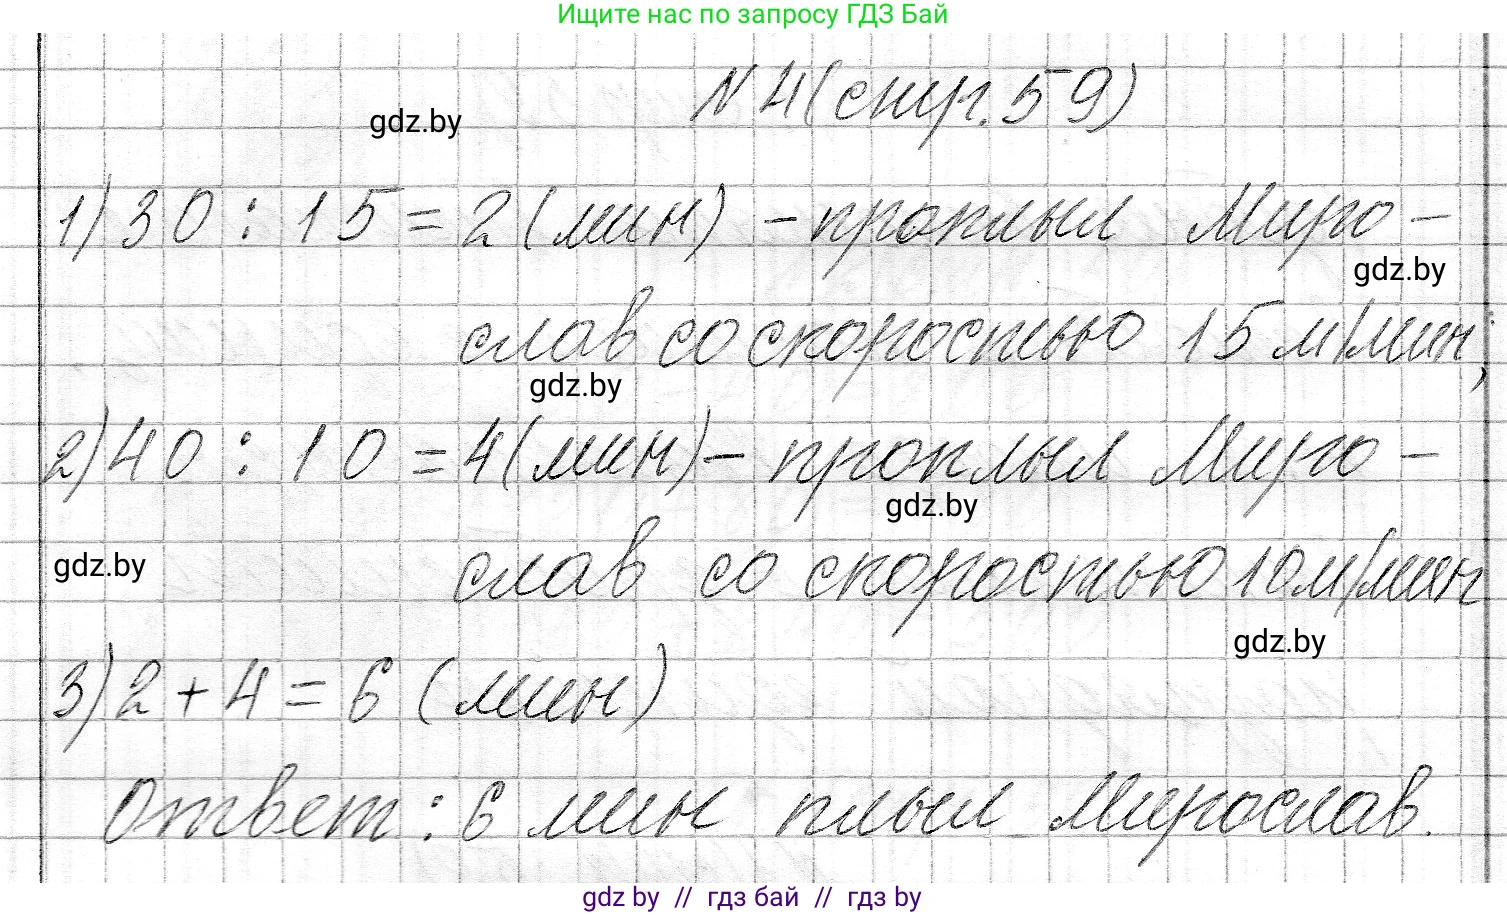 Ищите нас по запросу ГДЗ Бай
N 4 (стр. 59)
gdz.by
1) 30 : 15 = 2 (мин) - проплыл Миро-
gdz.by
слав со скоростью 15 м/мин;
gdz.by
2) 40 : 10 = 4 (мин) - проплыл Миро-
gdz.by
слав со скоростью 10 м/мин
gdz.by
gdz.by
3) 2 + 4 = 6 (мин)
Ответ: 6 мин плыл Мирослав.
gdz by // гдз бай // гдз by